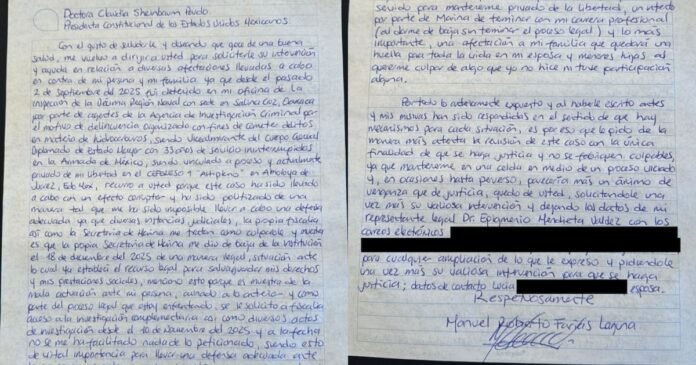 Doctora Claudia Sheinbaum Pardo
Presidenta Constitucional de los Estados Unidos Mexicanos
Con el gusto de saludarle y deseando que goce de una buena
salud, me vuelvo a dirigir a usted para solicitarle su intervención
y ayuda en relación a diversas afectaciones llevadas a cabo
en contra de mi persona y mi familia ya que desde el pasado
2 de septiembre del 2025 fui detenido en mi oficina de la
Inspección de la Décima Región Naval con sede en Salina Cruz, Oaxaca
por parte de agentes de la Agencia de Investigación Criminal por
el motivo de delincuencia organizada con fines de cometer delitos
en materia de hidrocarburos, siendo Vicealmirante del Cuerpo General
Diplomado de Estado Mayor con 33 años de servicio ininterrumpidos
en la Armada de México, siendo vinculado a proceso y actualmente
privado de mi libertad en el CEFERESO 1 "Altiplano" en Almoloya de
Juárez, Edo. Méx, recurro a usted porque este caso ha sido llevado
a cabo con un efecto corruptor y ha sido politizado de una
manera tal que me ha sido imposible llevar a cabo una defensa
adecuada ya que diversas instancias judiciales, la propia fiscalía
así como la Secretaría de Marina me tachan como culpable y muestra
es que la propia Secretaría de Marina me dio de baja de la institución
el 18 de diciembre del 2025 de una manera ilegal, situación ante
lo cual ya establecí el recurso legal para salvaguardar mis derechos
y mis prestaciones sociales, menciono esto porque es muestra de la
mala actuación ante mi persona, aunado a lo anterior y como
parte del proceso legal que estoy enfrentando, se le solicitó a fiscalía
acceso a la investigación complementaria así como diversos actos
de investigación desde el 10 de noviembre del 2025 y a la fecha
no se me ha facilitado nada de lo peticionado, siendo esto
de vital importancia para llevar una defensa adecuada ante
servido para mantenerme privado de la libertad, un efecto
por parte de Marina de terminar con mi carrera profesional
(al darme de baja sin terminar el proceso legal) y lo más
importante, una afectación a mi familia que quedará una
huella para toda la vida en mi esposa y menores hijas al
quererme culpar de algo que yo no hice ni tuve participación
alguna.
Por todo lo anteriormente expuesto y al haberle escrito antes
y mis misivas han sido respondidas en el sentido de que hay
mecanismos para cada situación, es por eso que le pido de la
manera más atenta la revisión de este caso con la única
finalidad de que se haga justicia y no se fabriquen culpables,
ya que mantenerme en una celda en medio de un proceso viciado
y, en ocasiones hasta perverso, pareciera más un ánimo de
venganza que de justicia, quedo de usted, solicitándole una
vez más su valiosa intervención y dejando los datos de mi
representante legal Dr. Epigmenio Mendieta Valdez con los
correos electrónicos
para cualquier ampliación de lo que le expreso y pidiéndole
una vez más su valiosa intervención para que se haga
justicia; datos de contacto Lucía esposa.
Respetuosamente
Manuel Roberto Farías Laguna